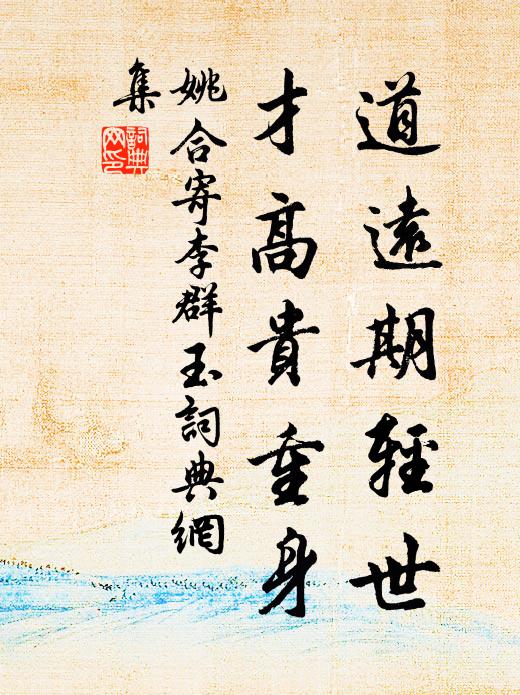 道遠期輕世
才高貴重身
姚合寄李群玉詞典網
集
詞典
网印